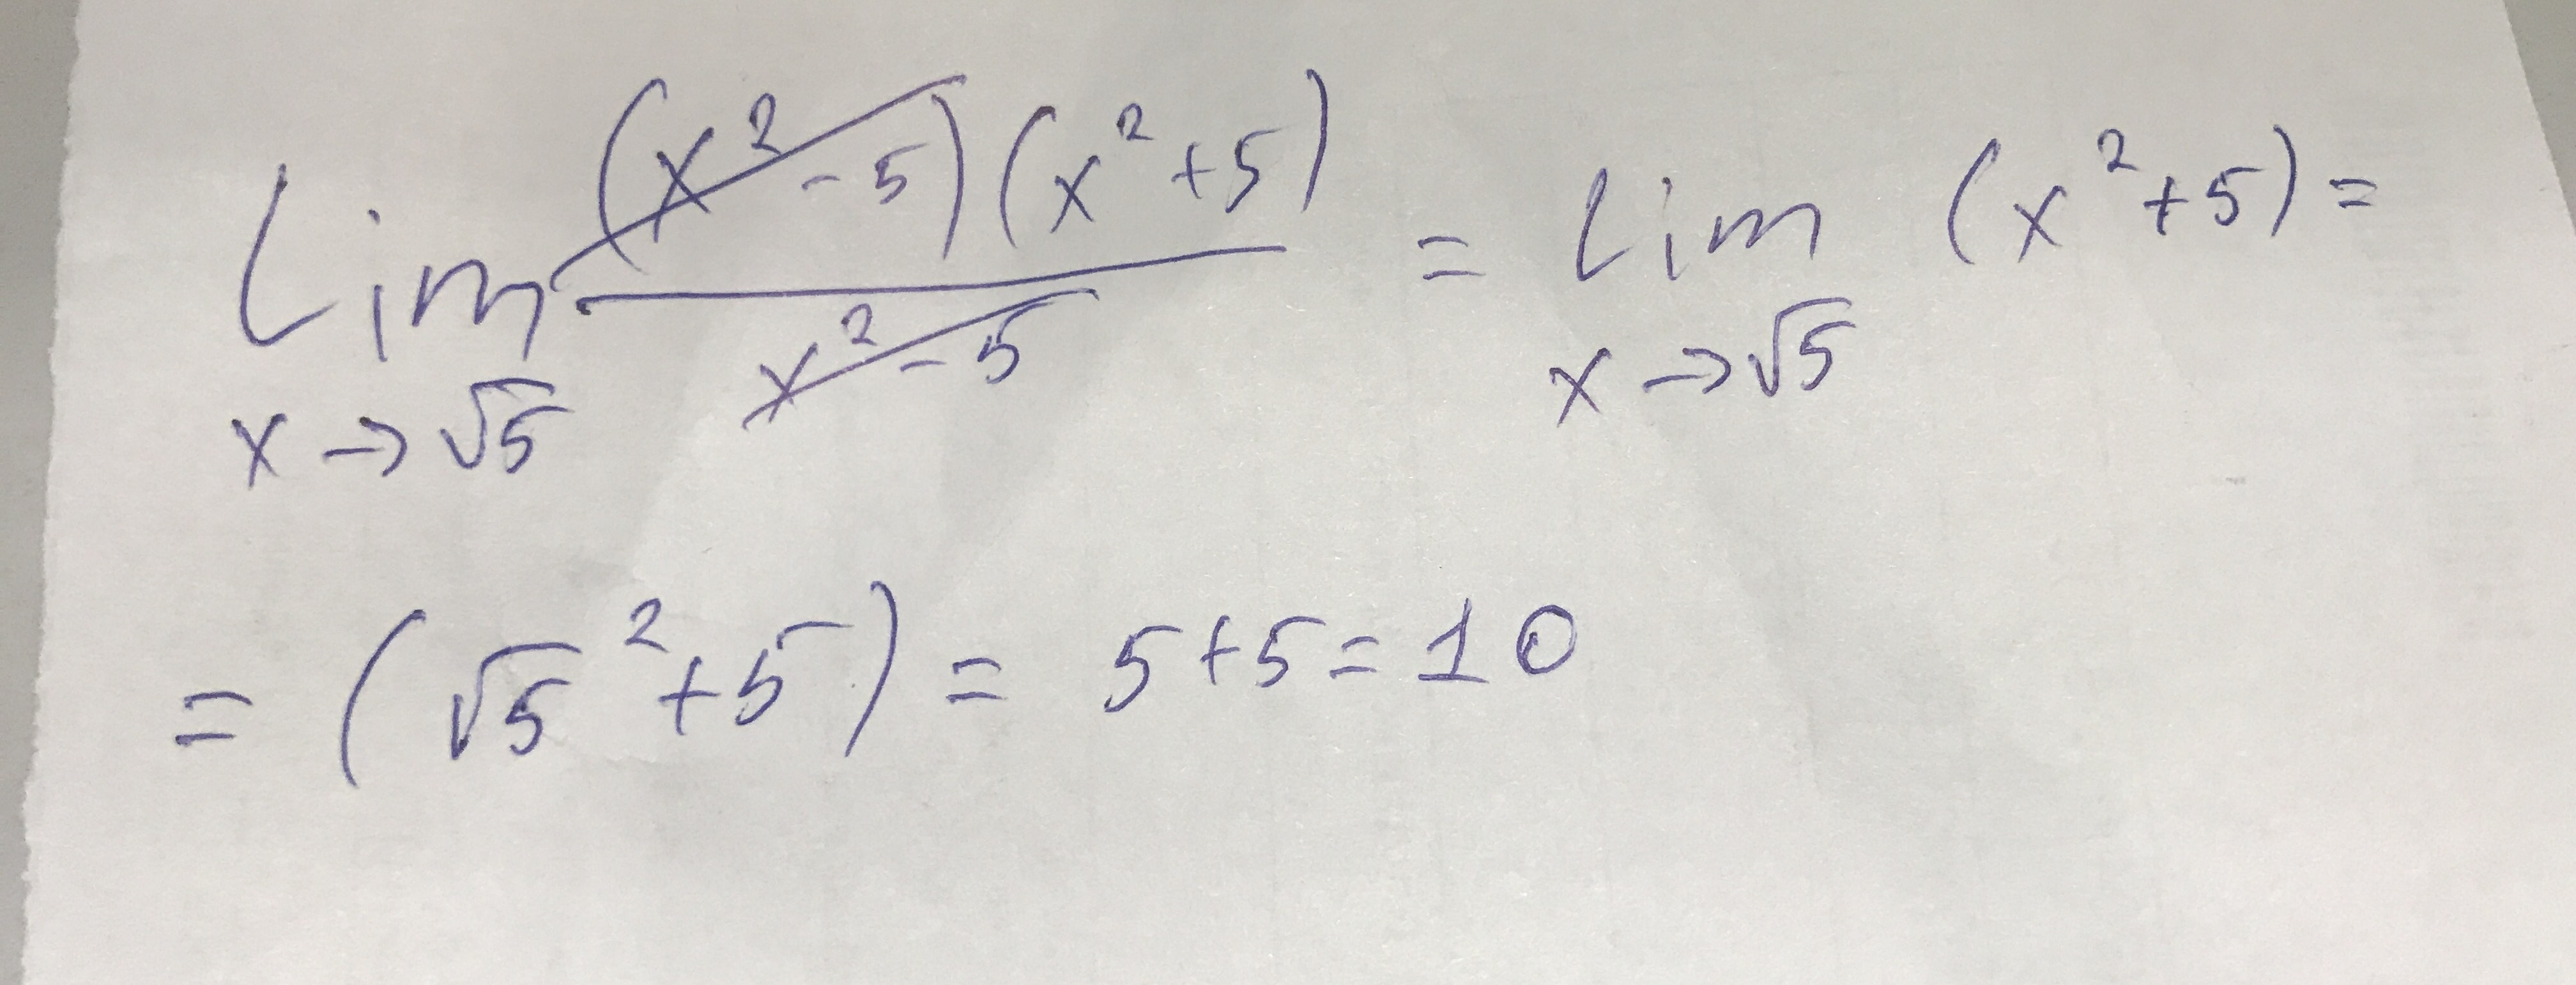 lim x→√5 (x²-5)(x²+5) / x²-5 = lim x→√5 (x²+5) =
= (√5² +5) = 5+5=10